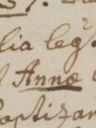 57.
lia leg.
Annæ
aptizan